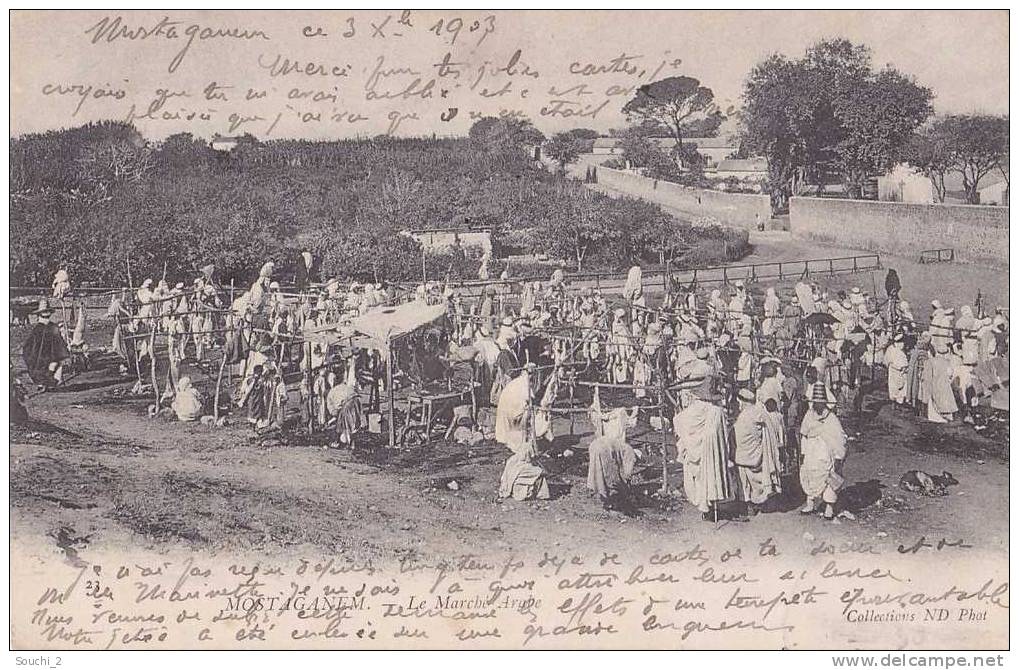 Mostaganem ce 3 Xbre 1903
Merci pour tes jolies cartes, je
croyais que tu m'avais oublié et c'est avec
plaisir que j'ai vu que
Je n'ai pas reçu depuis longtemps déjà de carte de ta soeur et de
Je ne sais à quoi attribuer leur silence.
23 MOSTAGANEM. Le Marché Arabe
Nous venons de subir cette semaine les effets d'une tempête épouvantable
Collections ND Phot
Notre jetée a été enlevée sur une grande longueur
Souchi_2
http://www.delcampe.net